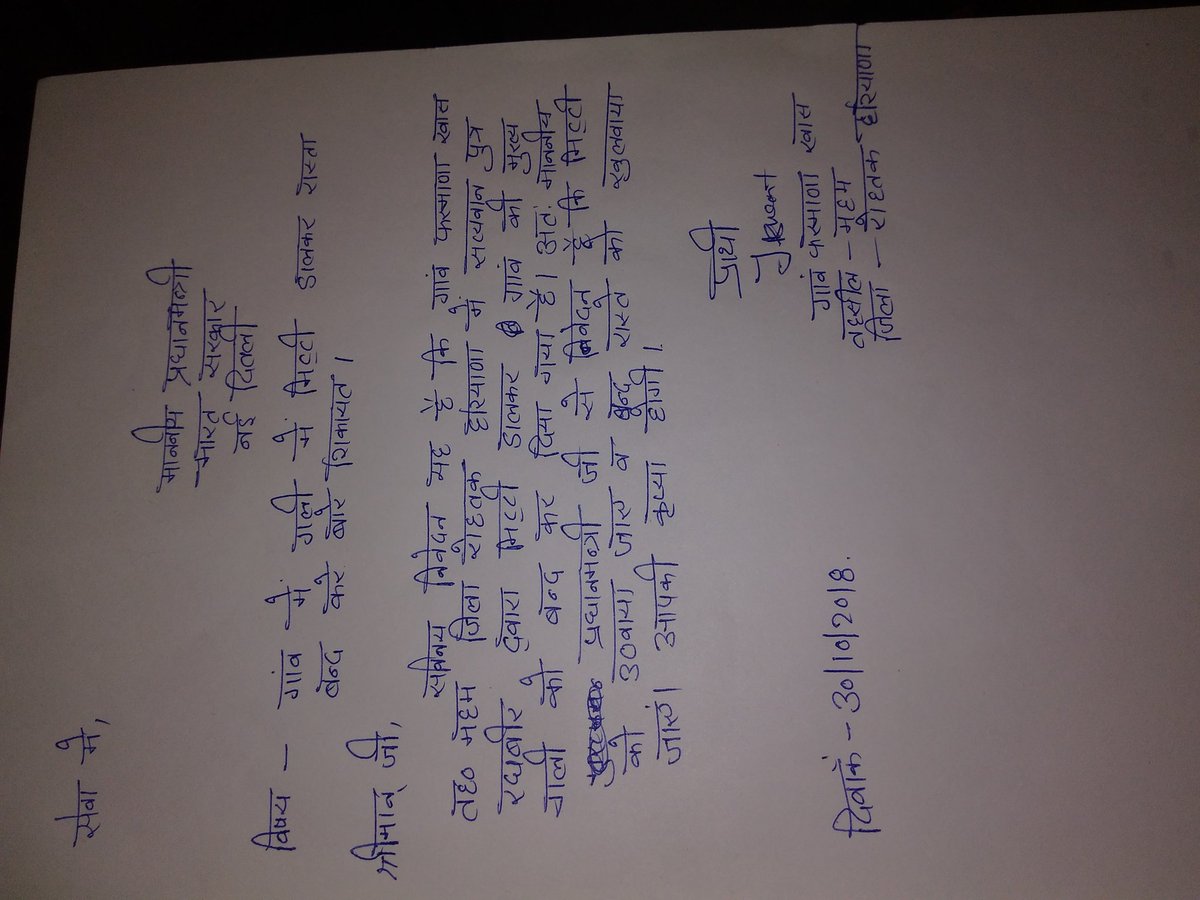 सेवा में,
माननीय प्रधानमन्त्री
भारत सरकार
नई दिल्ली
विषय - गांव में गली में मिट्टी डालकर रास्ता
बन्द करे बारे शिकायत।
श्रीमान् जी,
सविनय निवेदन यह है कि गांव फरमाणा खास
तह० महम जिला रोहतक हरियाणा में सत्यवान पुत्र
रघबीर द्वारा मिट्टी डालकर गांव की मुख्य
गली को बन्द कर दिया गया है। अतः माननीय
प्रधानमन्त्री जी से निवेदन है कि मिट्टी
को उठवाया जाए व बन्द रास्ते को खुलवाया
जाए। आपकी कृप्या होगी।
प्रार्थी
गांव फरमाणा खास
तहसील - महम
जिला - रोहतक हरियाणा
दिनांक - 30/10/2018.